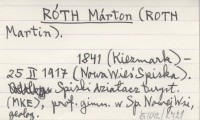 RÓTH Márton (ROTH
Martin).
1841 (Kiezmark) –
25 II 1917 (Nowa Wieś Spiska).
Spiski działacz turyst.
(MKE), prof. gimn. w Sp. Nowej Wsi,
geolog.